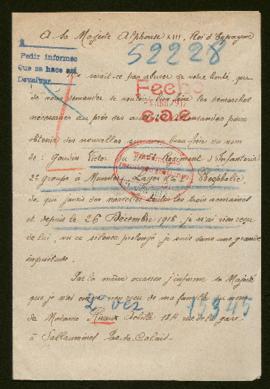 A Sa Majesté Alphonse XIII, Roi d'Espagne
52228
Pedir informes
que se hace así
Devolver.
Serait-ce pas abuser de votre bonté, que
de vous demander de vouloir bien faire les démarches
nécessaires au près des autorités allemandes pour
obtenir des nouvelles au nom de
Gaudin Victor du Régiment d'Infanterie
2e groupe à Munster Westphalie
de qui j'avais des nouvelles toutes les trois semaines
et depuis le 26 Décembre 1916 je n'ai rien reçu
de lui, vu ce silence prolongé je suis dans une grande
inquiétude.
Par la même occasion j'informe sa Majesté
que je n'ai rien reçu de ma famille du nom
2 vez 15345
de Madame 184 rue de la gare
à Sallaumines Pas de Calais
Fecha